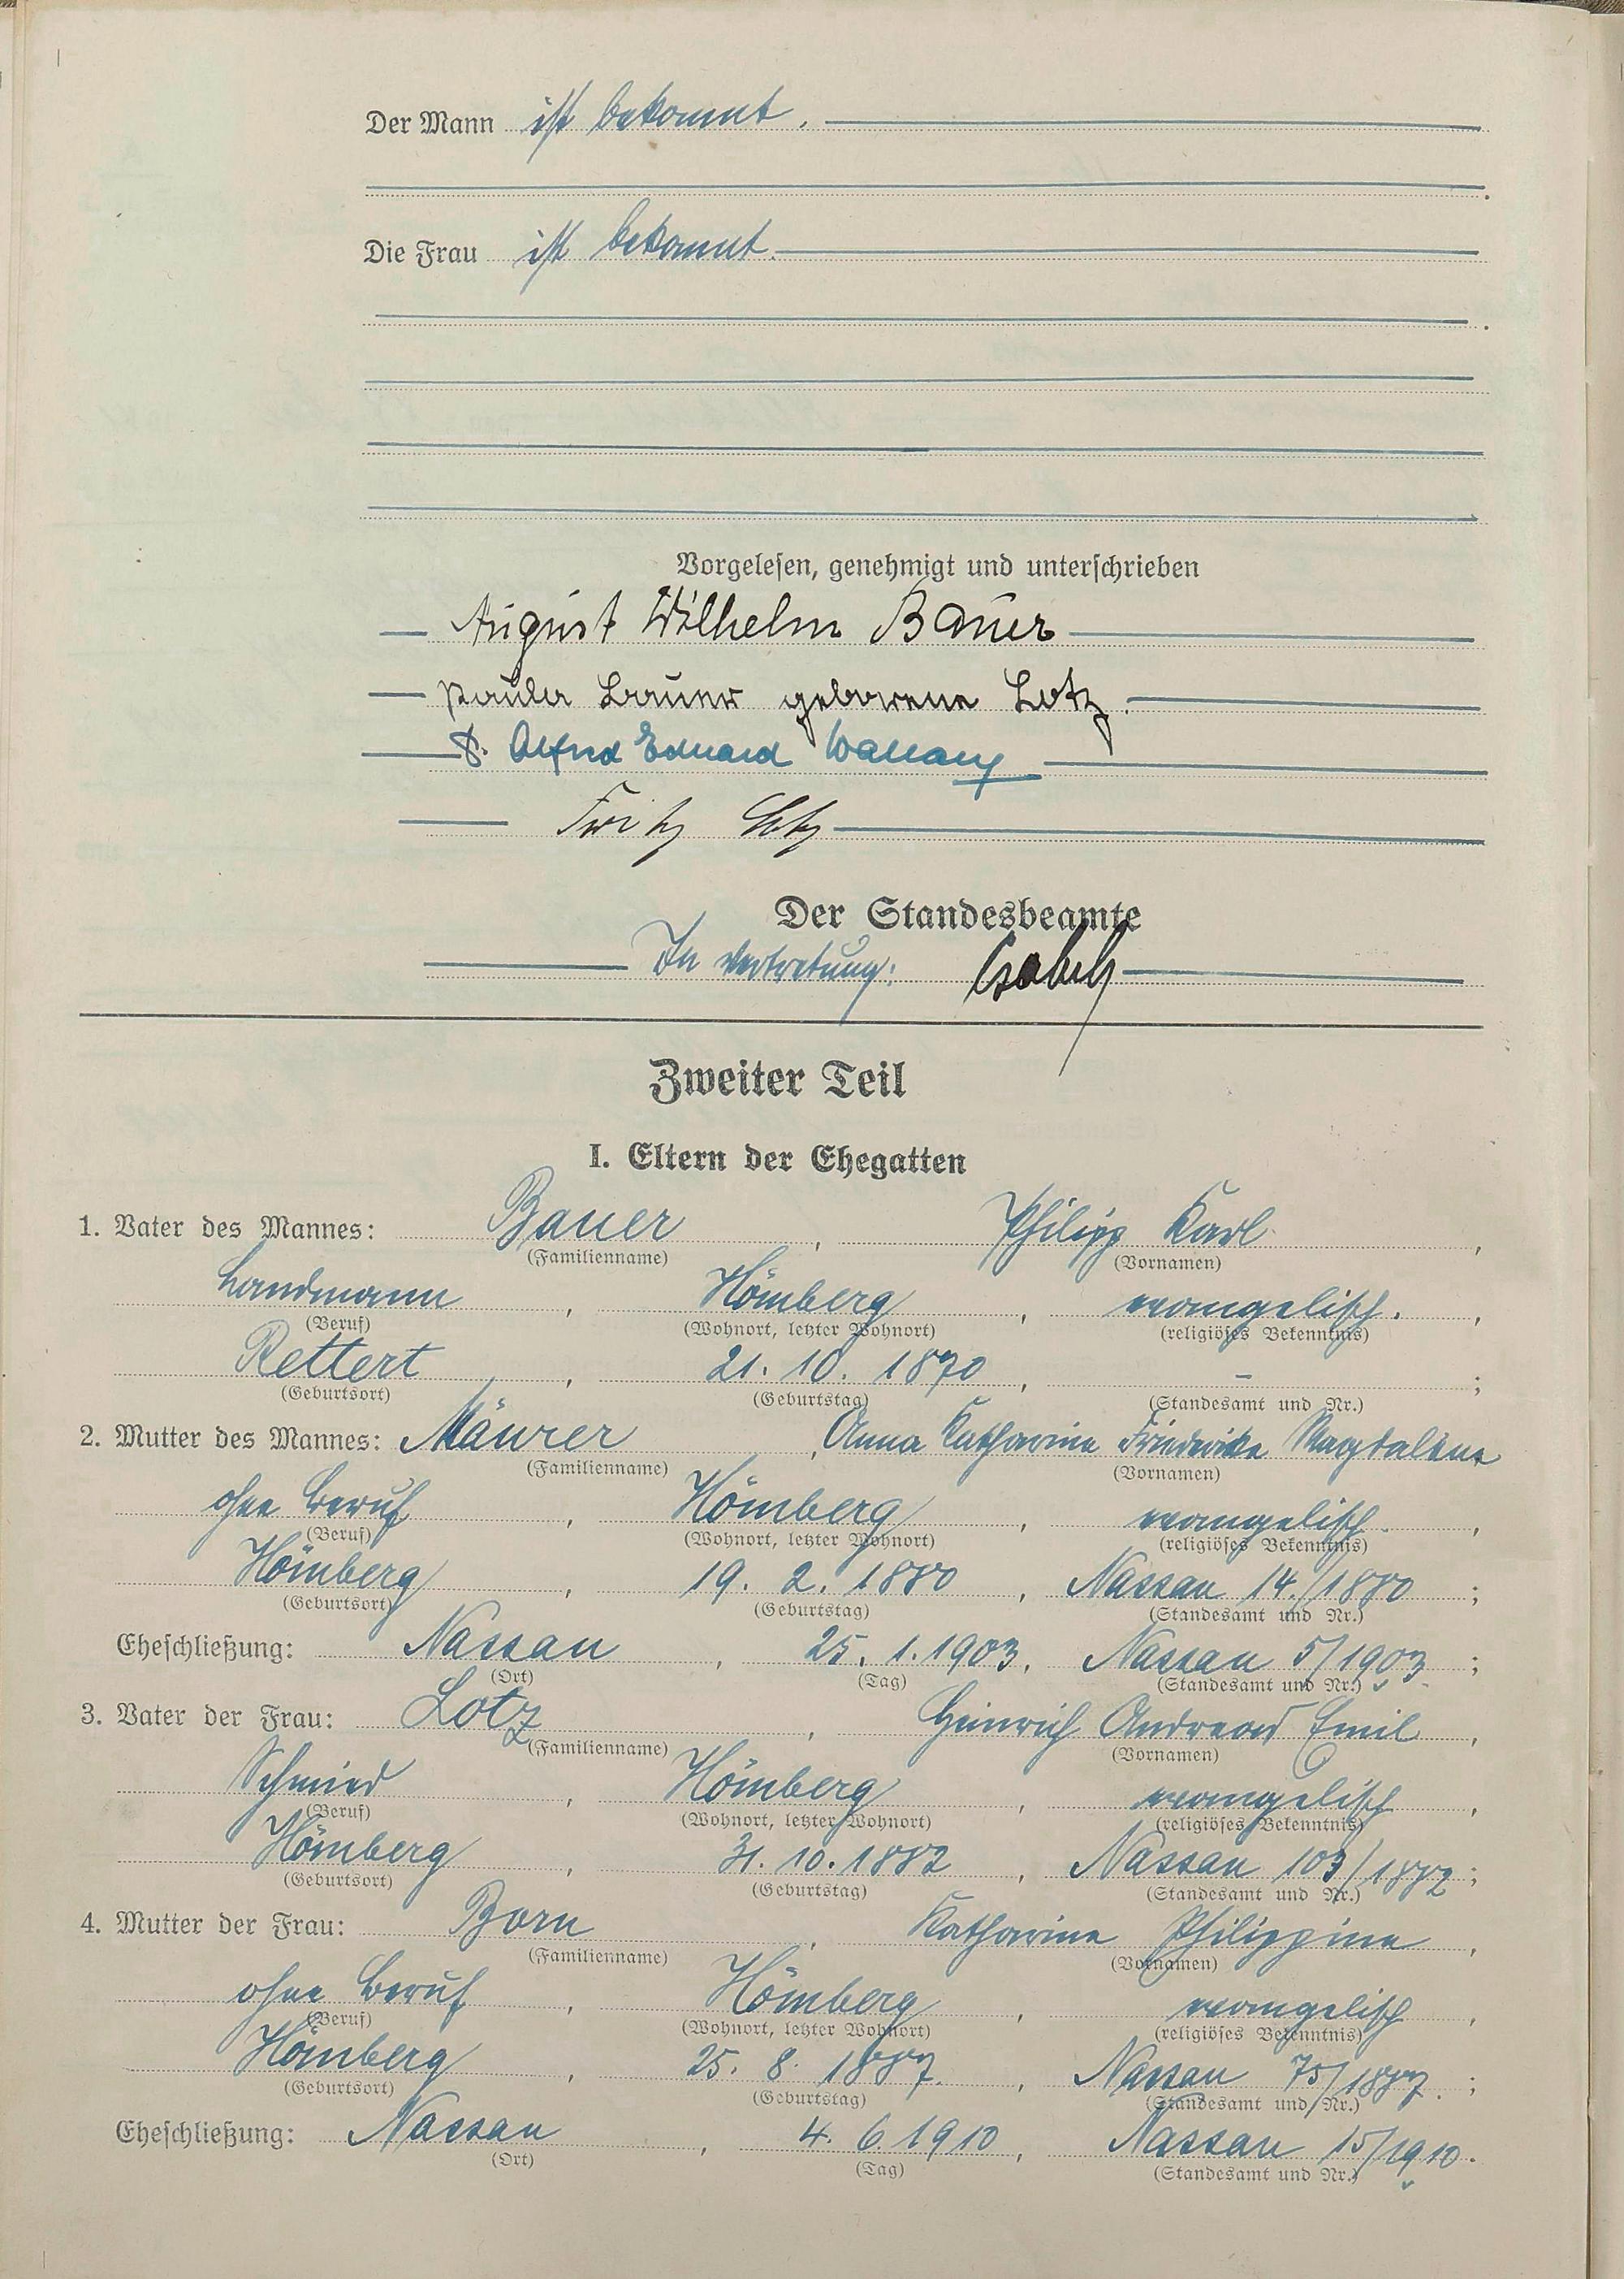 Der Mann ist bekannt.
Die Frau ist bekannt.
Vorgelesen, genehmigt und unterschrieben
August Wilhelm Bauer
Paula Bauer geborene Lotz.
Alfred Eduard
Fritz Lotz
Der Standesbeamte
In Vertretung:
Zweiter Teil
I. Eltern der Ehegatten
1. Vater des Mannes: Bauer, Philipp Karl,
(Familienname) (Vornamen)
Landmann, Hömberg, evangelisch.,
(Beruf) (Wohnort, letzter Wohnort) (religiöses Bekenntnis)
Rettert, 21. 10. 1870, - ;
(Geburtsort) (Geburtstag) (Standesamt und Nr.)
2. Mutter des Mannes: Mäurer, Anna Katharina Friederike Magdalene
(Familienname) (Vornamen)
ohne Beruf, Hömberg, evangelisch.,
(Beruf) (Wohnort, letzter Wohnort) (religiöses Bekenntnis)
Hömberg, 19. 2. 1880, Nassau 14./1880;
(Geburtsort) (Geburtstag) (Standesamt und Nr.)
Eheschließung: Nassau, 25. 1. 1903, Nassau 5/1903;
(Ort) (Tag) (Standesamt und Nr.)
3. Vater der Frau: Lotz, Heinrich Andreas Emil,
(Familienname) (Vornamen)
Schmied, Hömberg, evangelisch,
(Beruf) (Wohnort, letzter Wohnort) (religiöses Bekenntnis)
Hömberg, 31. 10. 1882, Nassau 103/1882;
(Geburtsort) (Geburtstag) (Standesamt und Nr.)
4. Mutter der Frau: Born, Katharina Philippine,
(Familienname) (Vornamen)
ohne Beruf, Hömberg, evangelisch,
(Beruf) (Wohnort, letzter Wohnort) (religiöses Bekenntnis)
Hömberg, 25. 8. 1887., Nassau 75/1887.;
(Geburtsort) (Geburtstag) (Standesamt und Nr.)
Eheschließung: Nassau, 4. 6. 1910, Nassau 15/1910.
(Ort) (Tag) (Standesamt und Nr.)